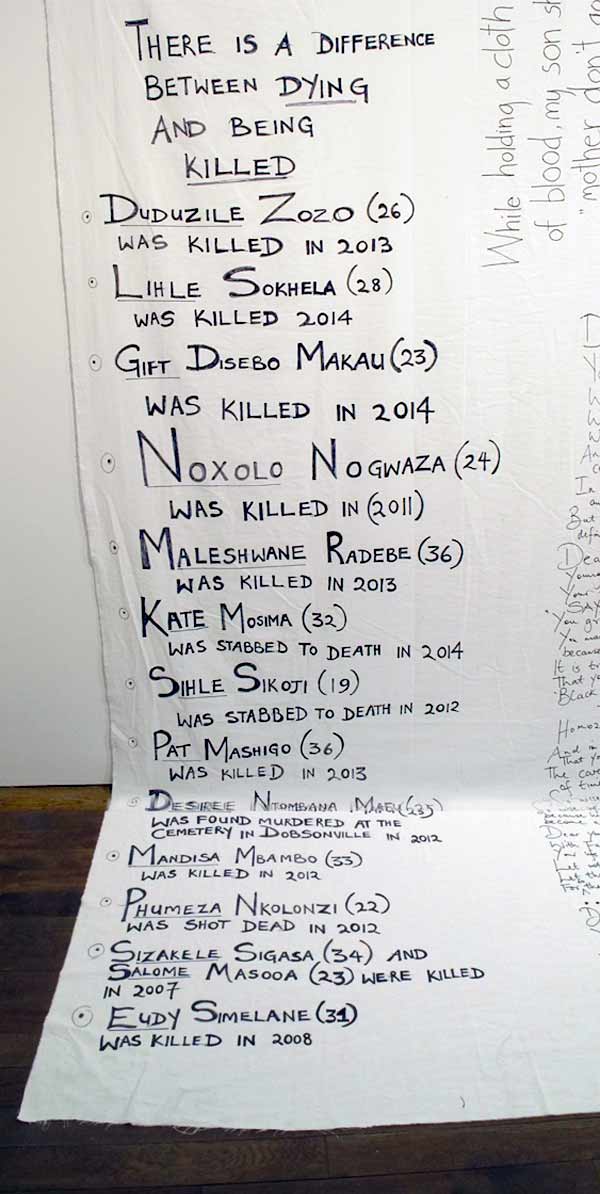 THERE IS A DIFFERENCE
BETWEEN DYING
AND BEING
KILLED
DUDUZILE ZOZO (26)
WAS KILLED IN 2013
LIHLE SOKHELA (28)
WAS KILLED 2014
GIFT DISEBO MAKAU (23)
WAS KILLED IN 2014
NOXOLO NOGWAZA (24)
WAS KILLED IN (2011)
MALESHWANE RADEBE (36)
WAS KILLED IN 2013
KATE MOSIMA (32)
WAS STABBED TO DEATH IN 2014
SIHLE SIKOJI (19)
WAS STABBED TO DEATH IN 2012
PAT MASHIGO (36)
WAS KILLED IN 2013
DESIREE NTOMBANA
WAS FOUND MURDERED AT THE
CEMETERY IN DOBSONVILLE IN 2012
MANDISA MBAMBO (33)
WAS KILLED IN 2012
PHUMEZA NKOLONZI (22)
WAS SHOT DEAD IN 2012
SIZAKELE SIGASA (34) AND
SALOME MASOOA (23) WERE KILLED
IN 2007
EUDY SIMELANE (31)
WAS KILLED IN 2008
While holding a cloth
of blood, my son
"mother don't
In
But
Dea
SAY
You
because
It is
That
Black
And
That
The
of
Dear
With